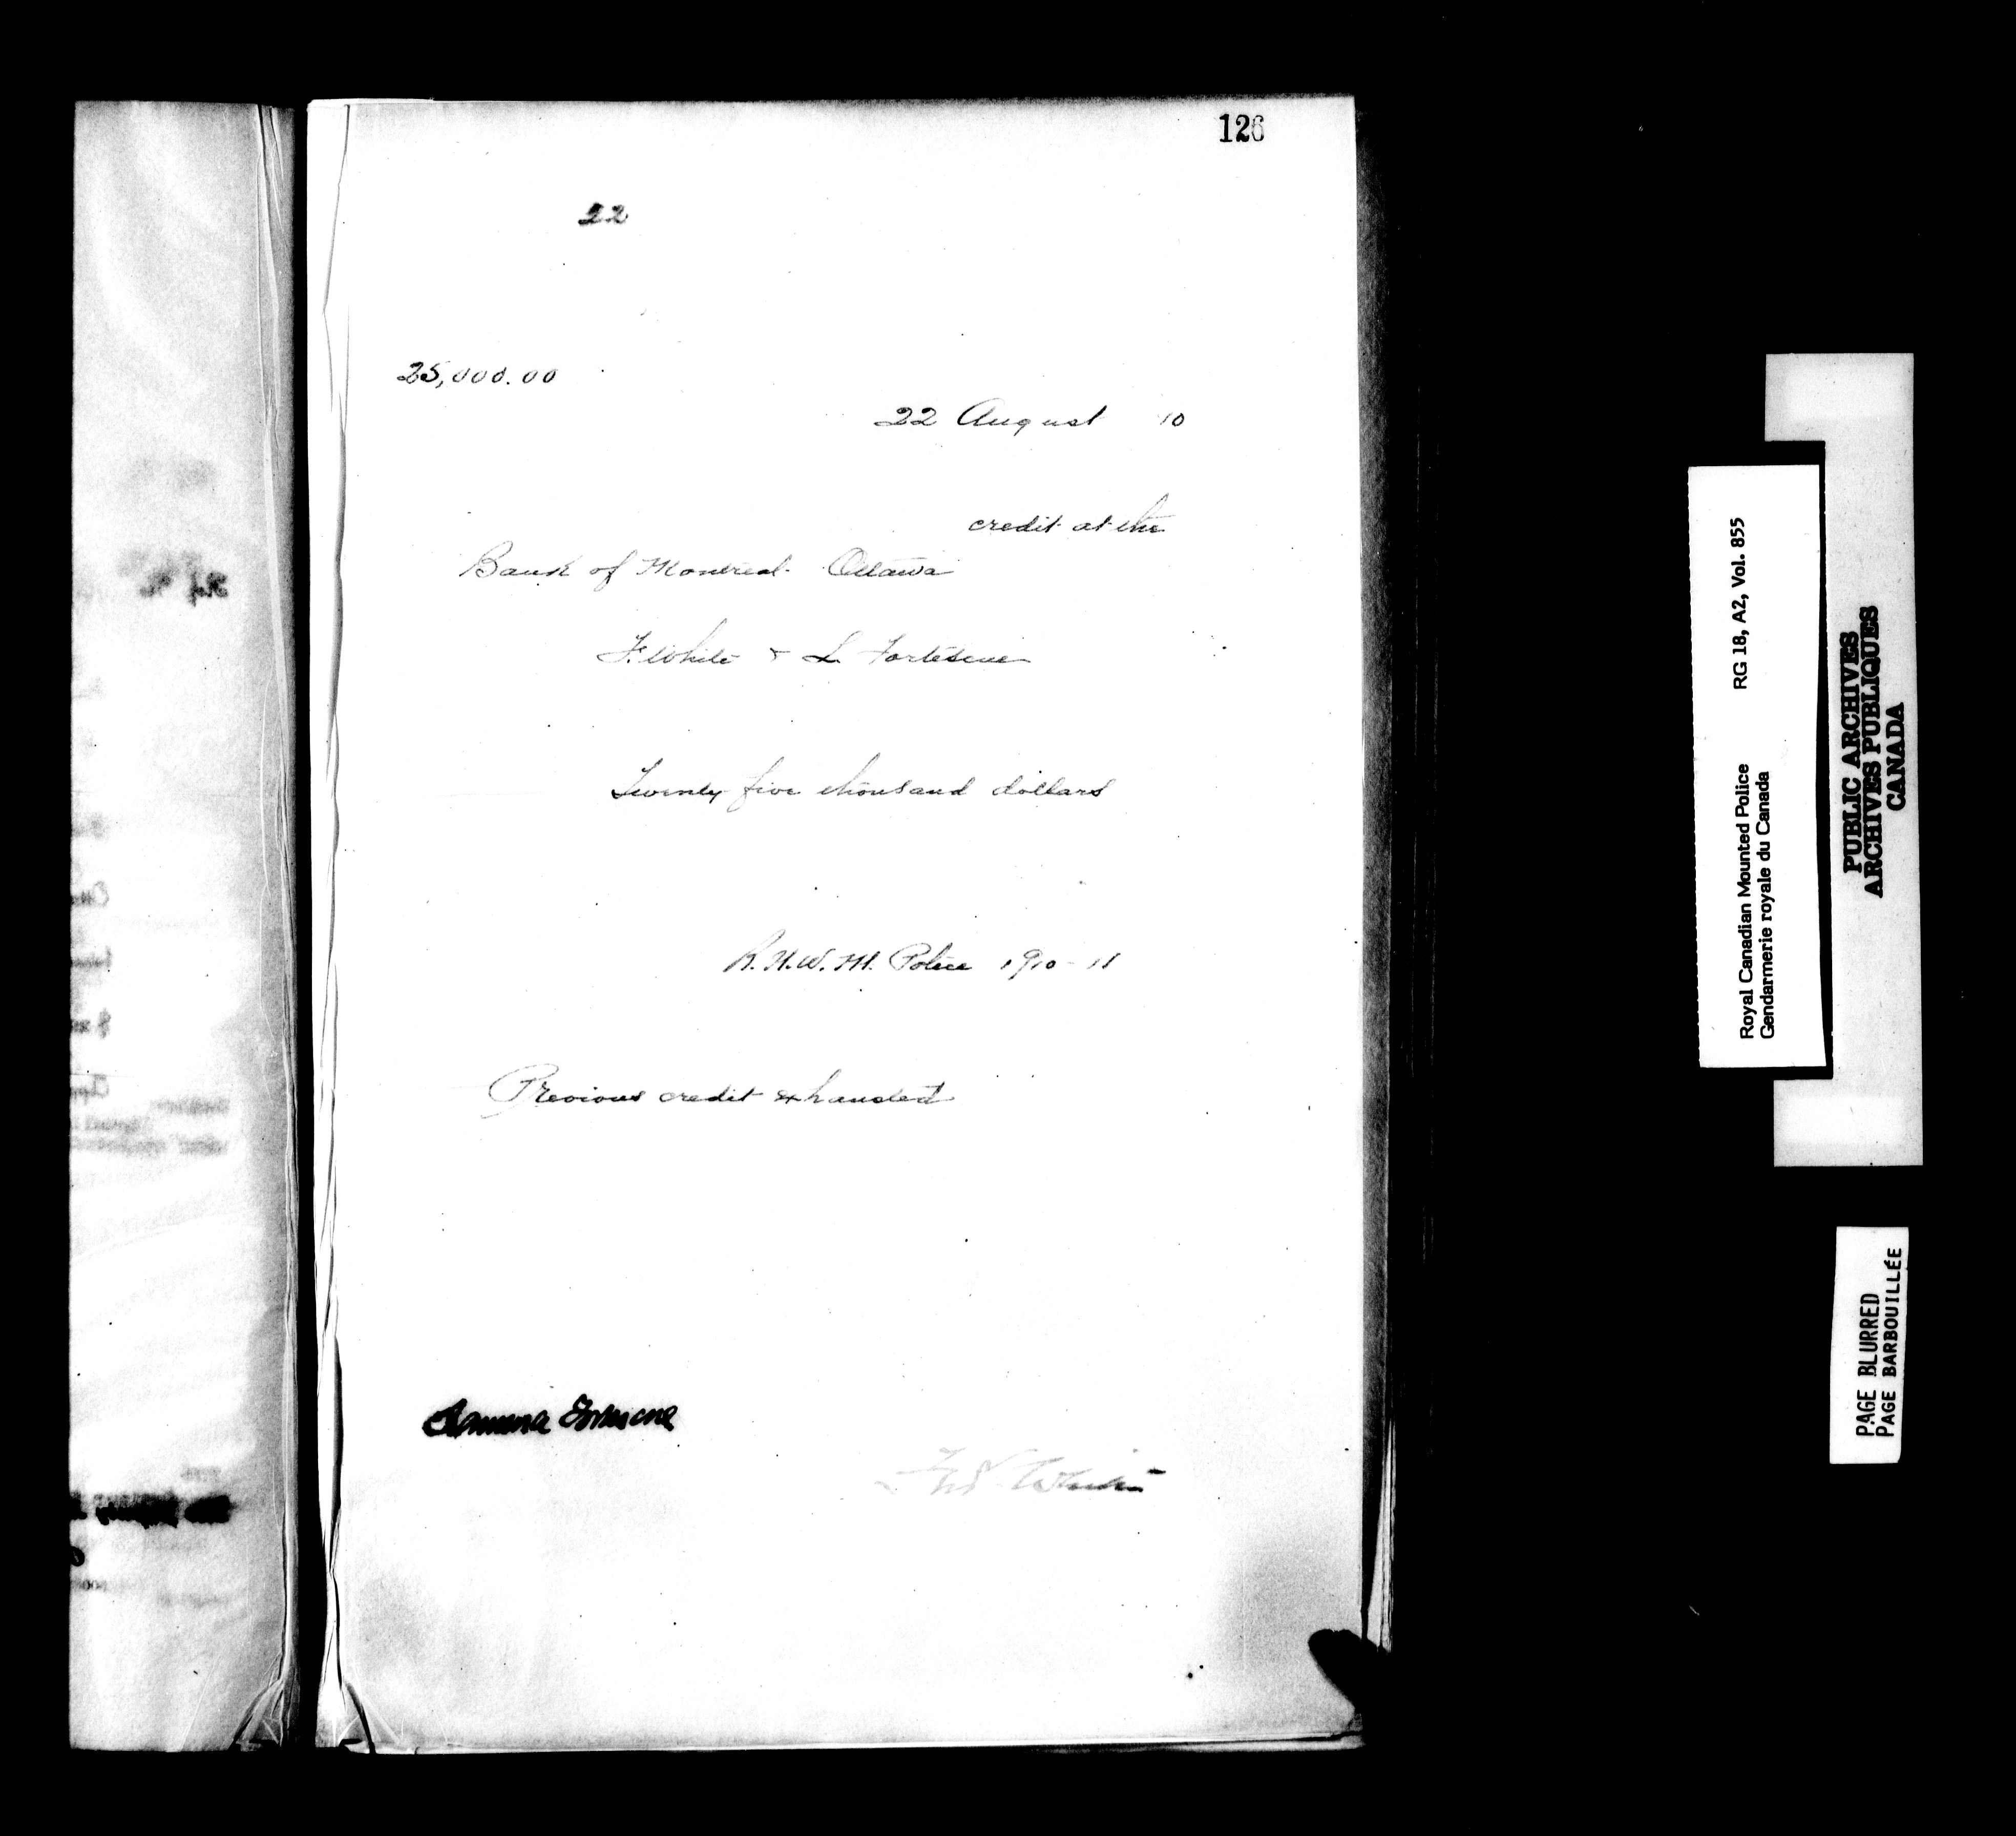 126
22
25,000.00
22 August 10
credit at the
Bank of Montreal Ottawa
F. White & L Fortescue
Twenty five thousand dollars
R.N.W.M. Police 1910-11
Previous credit exhausted
Fortescue
Fred White
Royal Canadian Mounted Police RG 18, A2, Vol. 855
Gendarmerie royale du Canada
PUBLIC ARCHIVES
ARCHIVES PUBLIQUES
CANADA
PAGE BLURRED
PAGE BARBOUILLÉE